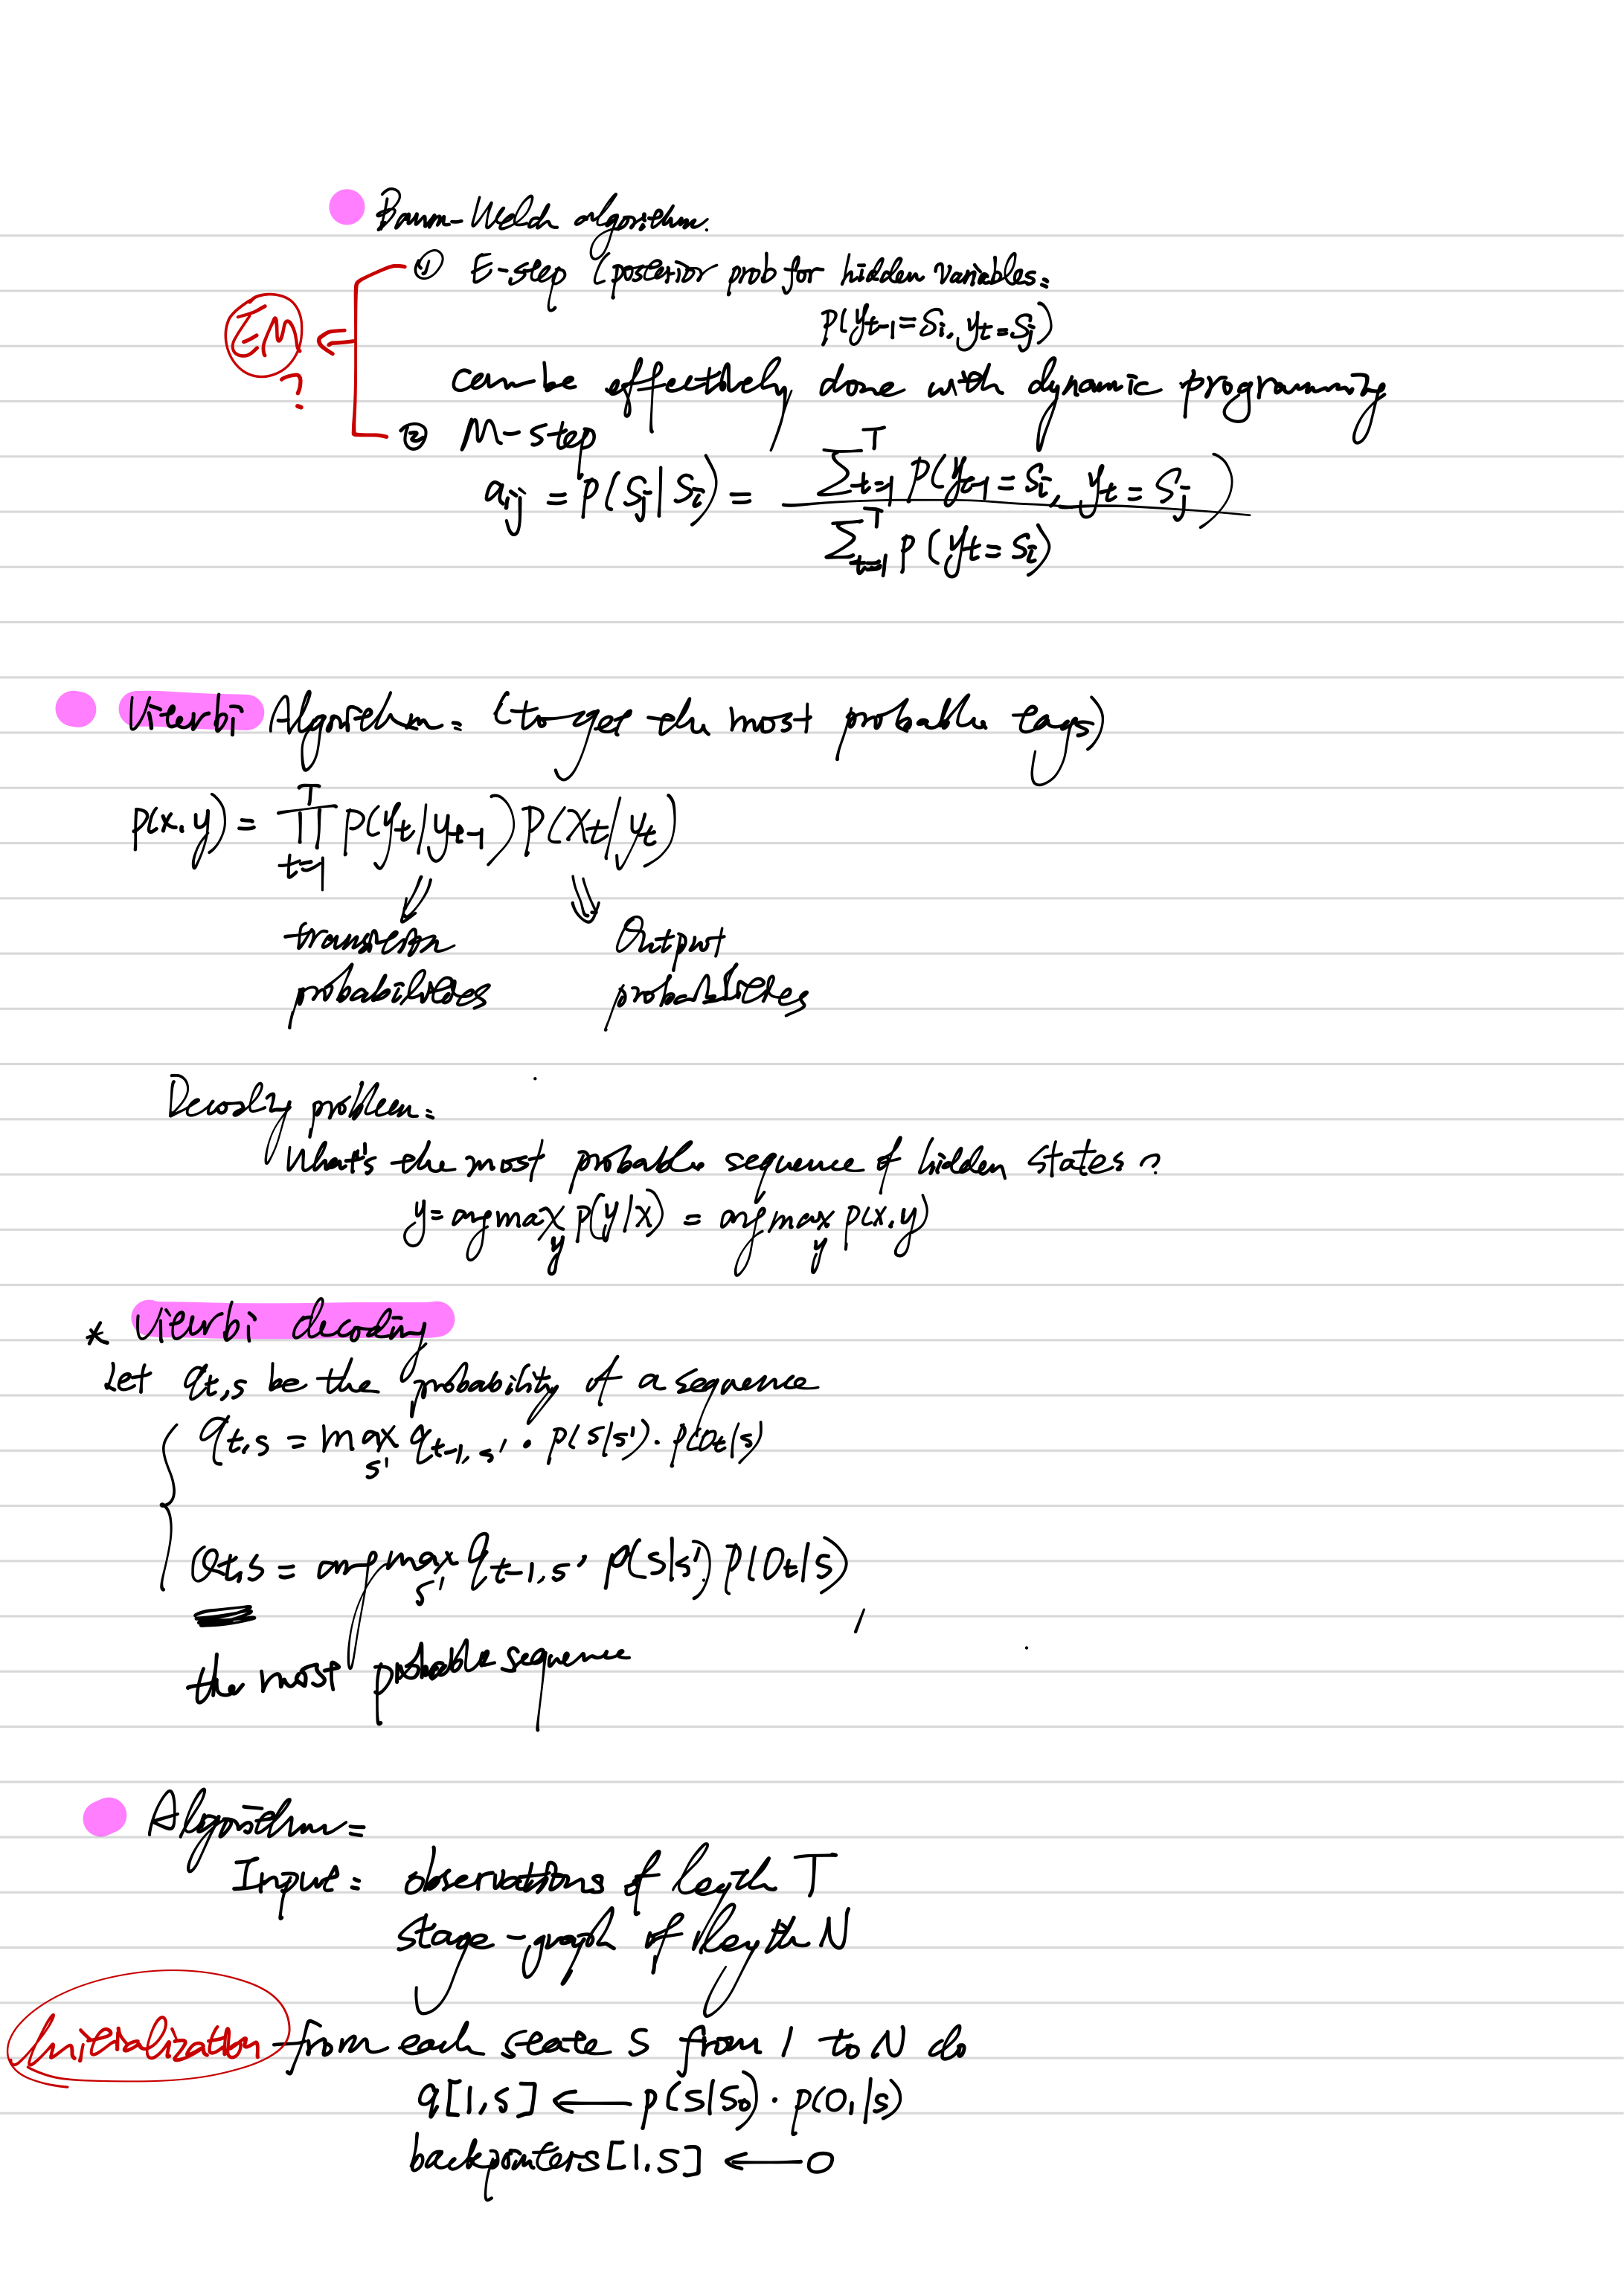 Baum-Welch algorithm.
① E-step (posterior prob for hidden variables:
p(y_{t-1}=S_i, y_t=S_j)
EM
?
can be effectively done with dynamic programming
② M-step
a_{ij} = p(S_j|S_i) = \frac{\sum_{t=1}^{T} p(y_{t-1}=S_i, y_t=S_j)}{\sum_{t=1}^{T} p(y_t=S_i)}
Viterbi Algorithm: (to get the most probable tags)
p(x.y) = \prod_{t=1}^{T} p(y_t|y_{t-1}) p(x_t|y_t)
transition Output
probabilities probabilities
Decoding problem:
What's the most probable sequence of hidden states?
y=argmax_y p(y|x) = argmax_y p(x.y)
* Viterbi decoding
Let q_{t,s} be the probability of a sequence
q_{t,s} = max_{s'} q_{t-1,s'} · p(s|s') · p(o_t|s)
Q_{t,s} = argmax_{s'} q_{t-1,s'} p(s|s') p(O_t|s)
the most probable sequence
Algorithm:
Input: observations of length T
stage-graph of length N
Initialization from each state s from 1 to N do
q[1,s] ← p(s|s_0) · p(O_1|s)
backpointers[1.s] ← 0